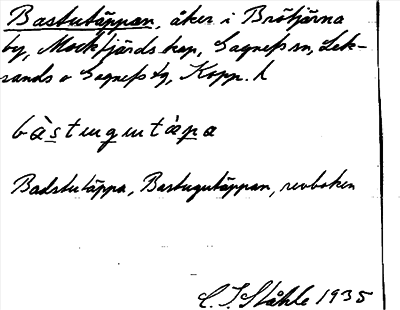 Bastutäppan, åker i Brötjärna
by, Mockfjärds kap., Gagnefs sn, Lek-
sands o Gagnefs tg, Kopp. l
bàstugutàpa
Badstutäppa, Bastugutäppan, revboken
C. I. Ståhle 1935